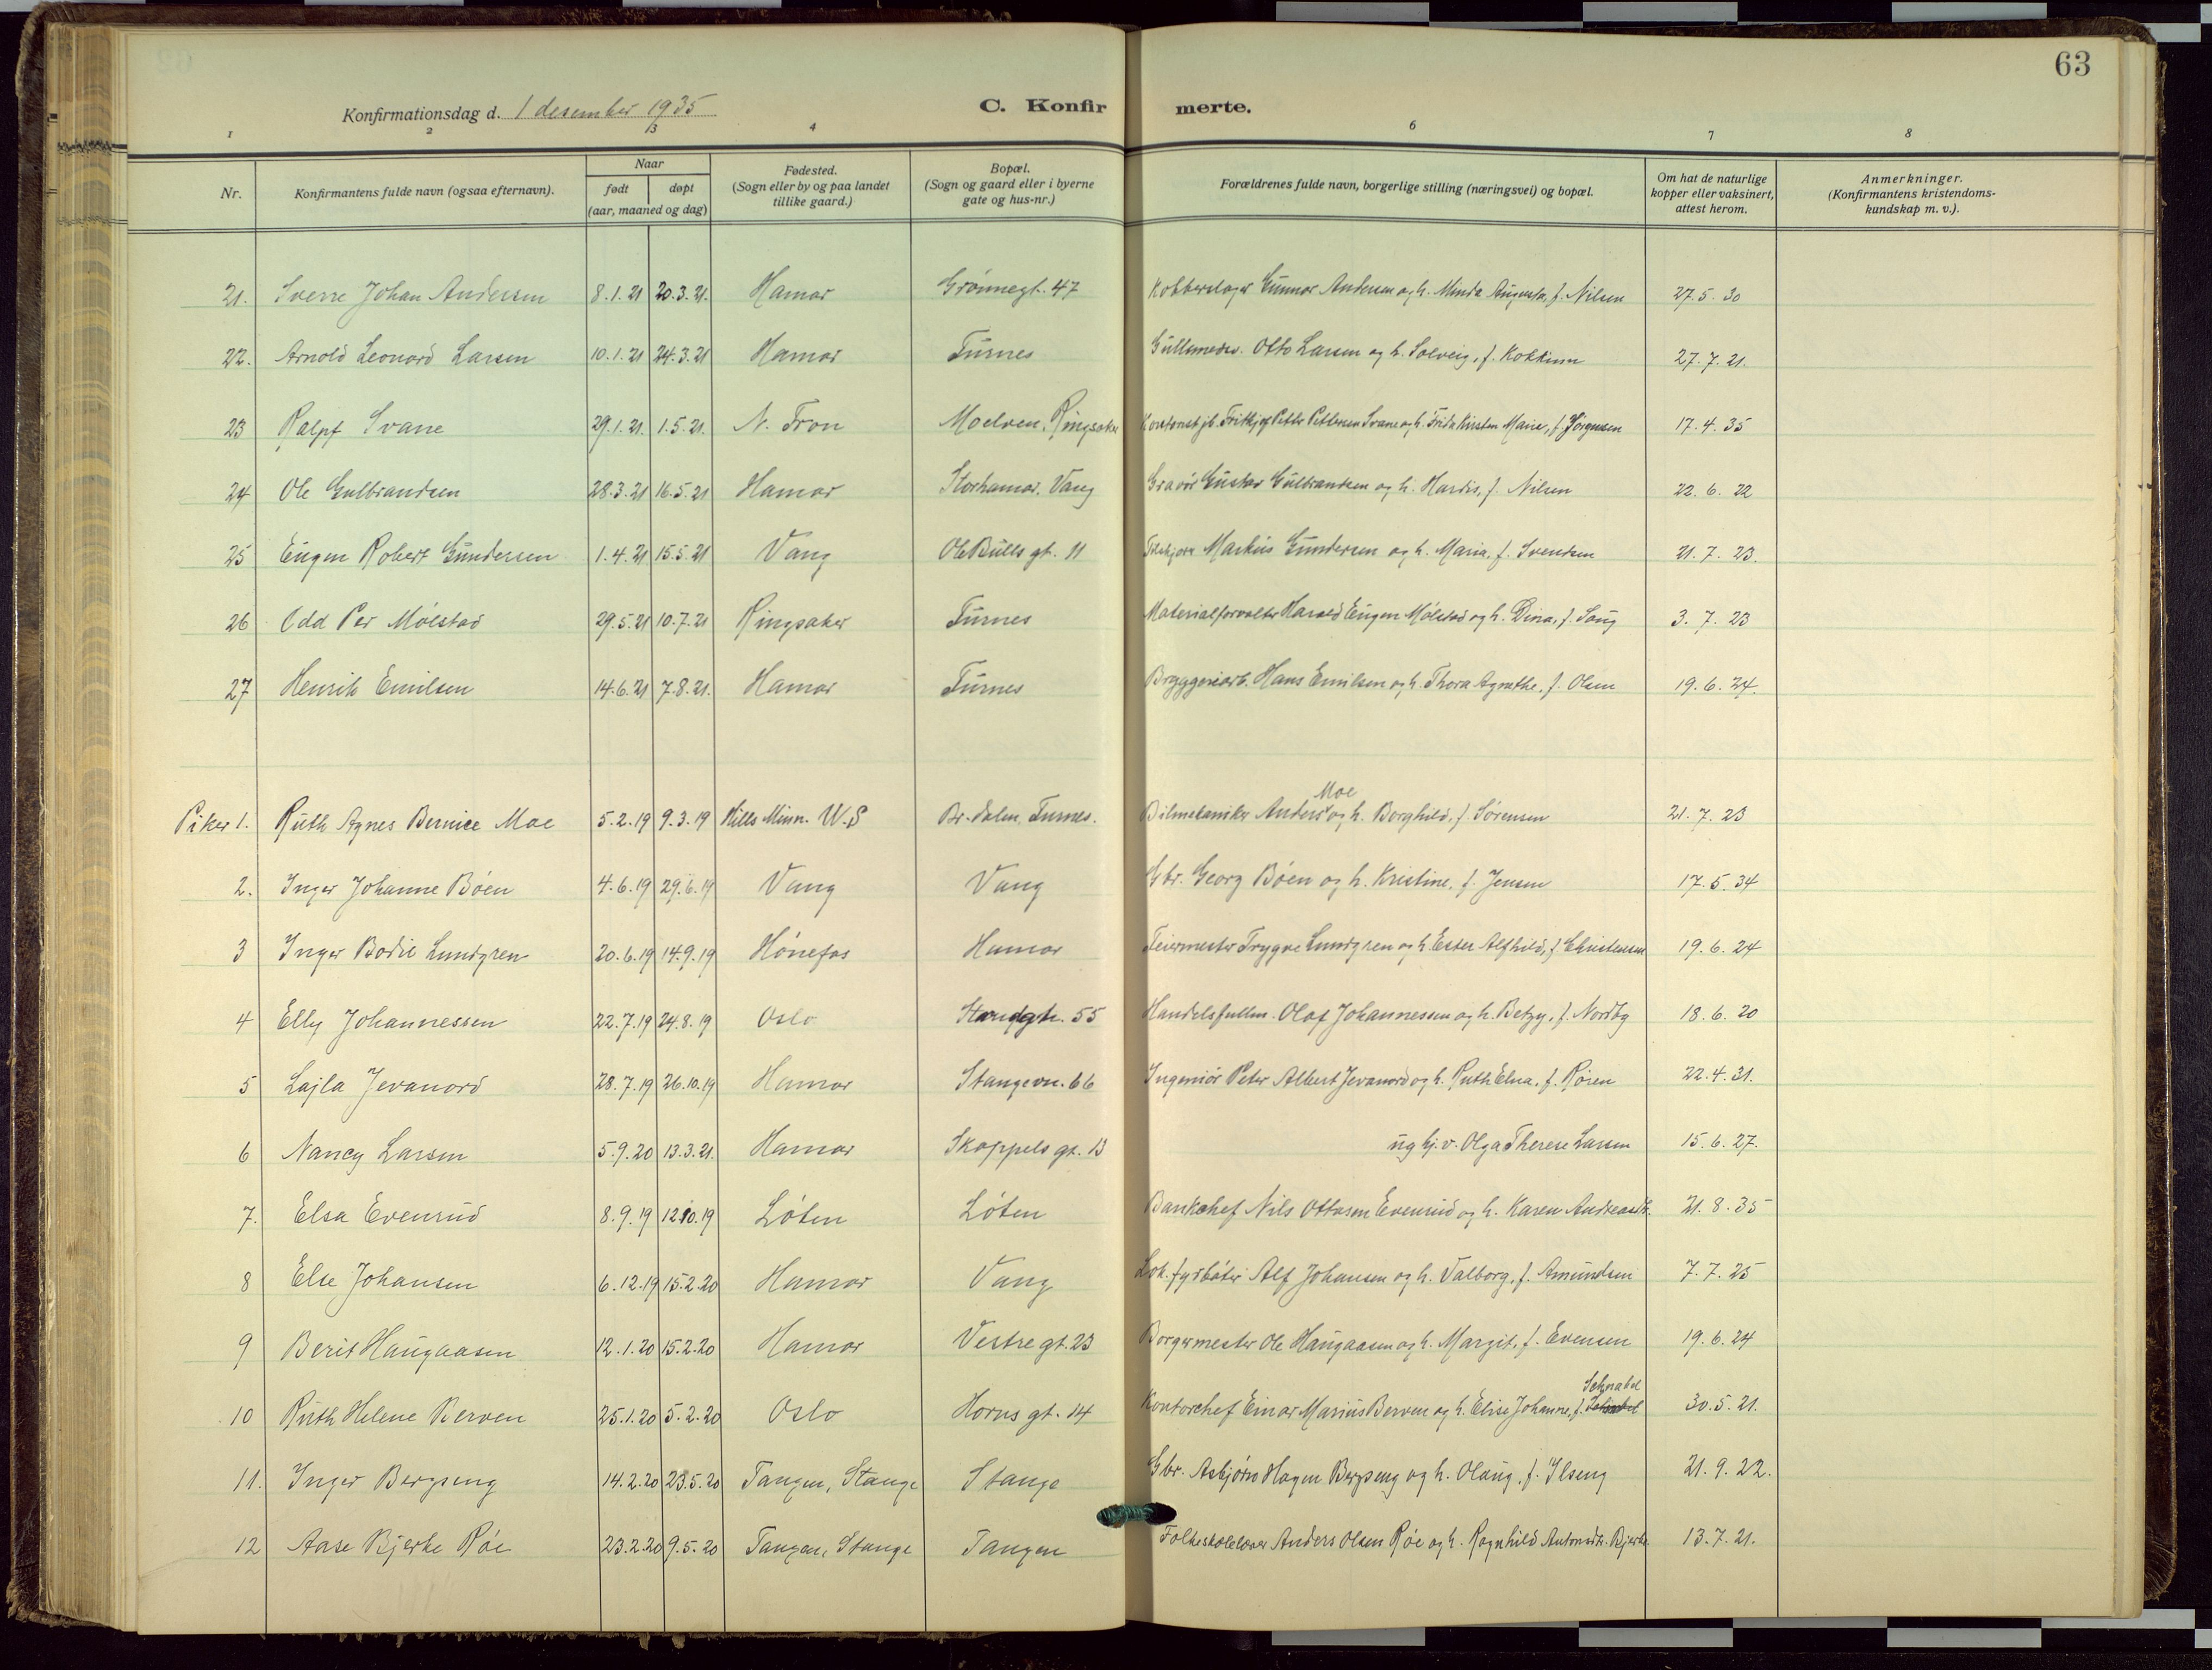 63
Konfirmationsdag d. 1 desember 1935 C. Konfirmerte.
1 2 3 4 6 7 8
Nr. Konfirmantens fulde navn (ogsaa efternavn). Naar født døpt (aar, maaned og dag) Fødested. (Sogn eller by og paa landet tillike gaard.) Bopæl. (Sogn og gaard eller i byerne gate og hus-nr.) Forældrenes fulde navn, borgerlige stilling (næringsvei) og bopæl. Om hat de naturlige kopper eller vaksinert, attest herom. Anmerkninger. (Konfirmantens kristendoms-kundskap m. v.).
21. Sverre Johan Andersen 8.1.21 20.3.21. Hamar Grønnegt. 47 Kobberslager Gunnar Andersen og h. Minda Augusta, f. Nilsen 27.5.30
22. Arnold Leonard Larsen 10.1.21 24.3.21 Hamar Furnes Gullsmedsv. Otto Larsen og h. Solveig, f. Kokkinn 27.7.21.
23 Ralpf Svane 29.1.21. 1.5.21. N. Fron Moelven, Ringsaker Kontorist jb. Fritkjof Petter Pettersen Svane og h. Frida Kirsten Marie, f. Jörgensen 17.4.35
24 Ole Gulbrandsen 28.3.21 16.5.21 Hamar Storhamar, Vang Gravör Gustav Gulbrandsen og h. Hardis, f. Nilsen 22.6.22
25 Eugen Robert Gundersen 1.4.21 15.5.21 Vang Ole Bulls gt. 11 Markus Gundersen og h. Maria, f. Svendsen 21.7.23.
26 Odd Per Mölstad 29.5.21 10.7.21 Ringsaker Furnes Materialforvalter Harald Eugen Mölstad og h. Dina, f. Saug 3.7.23
27 Henrik Emilsen 14.6.21 7.8.21. Hamar Furnes Bryggeriarb. Hans Emilsen og h. Thora Agnethe, f. Olsen 19.6.24.
Piker 1. Ruth Agnes Bernice Moe 5.2.19 9.3.19 Hills Minn. W.S Br.dalen, Furnes. Bilmekaniker Anders Moe og h. Borghild, f. Sørensen 21.7.23
2. Inger Johanne Böen 4.6.19 29.6.19 Vang Vang Gbr. Georg Böen og h. Kristine, f. Jensen 17.5.34
3 Inger Bodil Lundgren 20.6.19 14.9.19 Hönefos Hamar Feiermester Trygve Lundgren og h. Ester Alfhild, f. Christensen 19.6.24
4 Elly Johannessen 22.7.19 24.8.19 Oslo Strandgt. 55 Handelsfullm. Olaf Johannessen og h. Betzy, f. Nordby 18.6.20
5 Lajla Jevanord 28.7.19 26.10.19 Hamar Stangevn. 66 Ingeniör Peter Albert Jevanord og h. Ruth Elna, f. Rören 22.4.31.
6 Nancy Larsen 5.9.20 13.3.21. Hamar Skappels gt. 13 ug hj.v. Olga Therese Larsen 15.6.27.
7. Elsa Evensud 8.9.19 12.10.19 Löten Löten Bankchef Nils Ottosen Evensud og h. Karen Andreasdt. 21.8.35
8 Else Johansen 6.12.19 15.2.20 Hamar Vang Lok.fyrböter Alf Johansen og h. Valborg, f. Amundsen 7.7.25
9 Berit Haugaasen 12.1.20 15.2.20 Hamar Vestre gt. 23 Borgermester Ole Haugaasen og h. Margit, f. Evensen 19.6.24
10 Ruth Helene Berven 25.1.20 5.2.20 Oslo Horns gt. 14 Kontorchef Einar Marius Berven og h. Elise Johanne, f. Schnabel 30.5.21.
11. Inger Bergseng 14.2.20 23.5.20 Tangen, Stange Stange Gbr. Asbjørn Hagen Bergseng og h. Olaug, f. Ilseng 21.9.22.
12 Aase Bjerke Röe 23.2.20 9.5.20 Tangen, Stange Tangen Folkeskolelærer Anders Olsen Röe og h. Ragnhild Antonsdt. Bjerke 13.7.21.